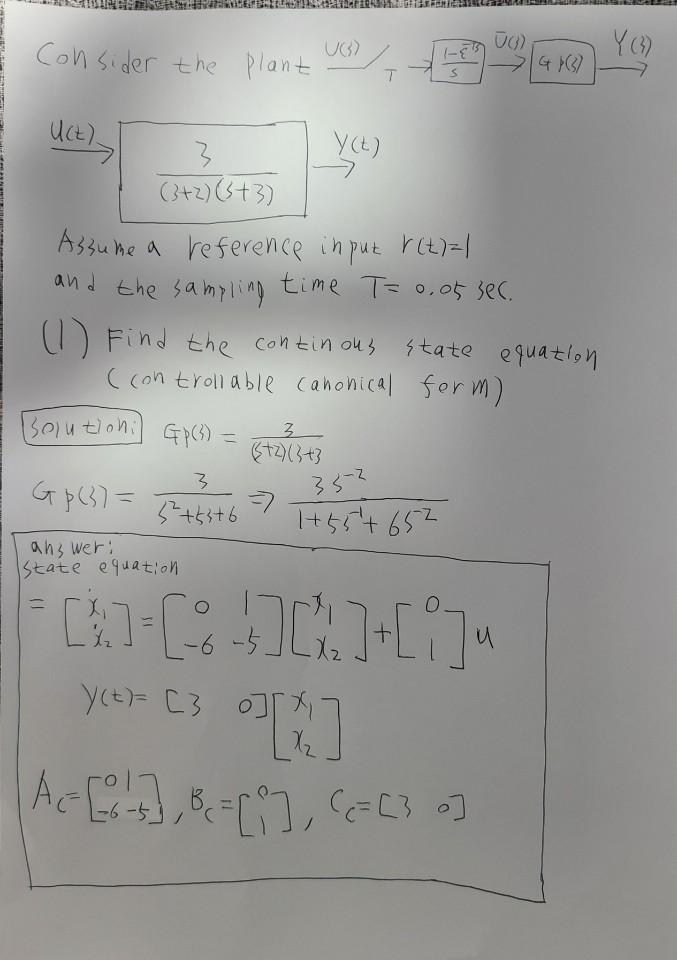 Consider the plant U(s) T 1-ε^-Ts/s Ū(s) Gp(s) Y(s)
U(t) 3/(s+2)(s+3) Y(t)
Assume a reference input r(t)=1
and the sampling time T= 0.05 sec.
(1) Find the continous state equation
(controllable canonical form)
solution: Gp(s) = 3/(s+2)(s+3
Gp(s) = 3/s²+5s+6 ⇒ 3s⁻²/1+5s⁻¹+6s⁻²
answer:
state equation
= [ẋ₁ ẋ₂] = [0 1 -6 -5] [x₁ x₂] + [0 1] u
Y(t)= [3 0] [x₁ x₂]
Ac=[0 1 -6 -5], Bc=[0 1], Cc=[3 0]